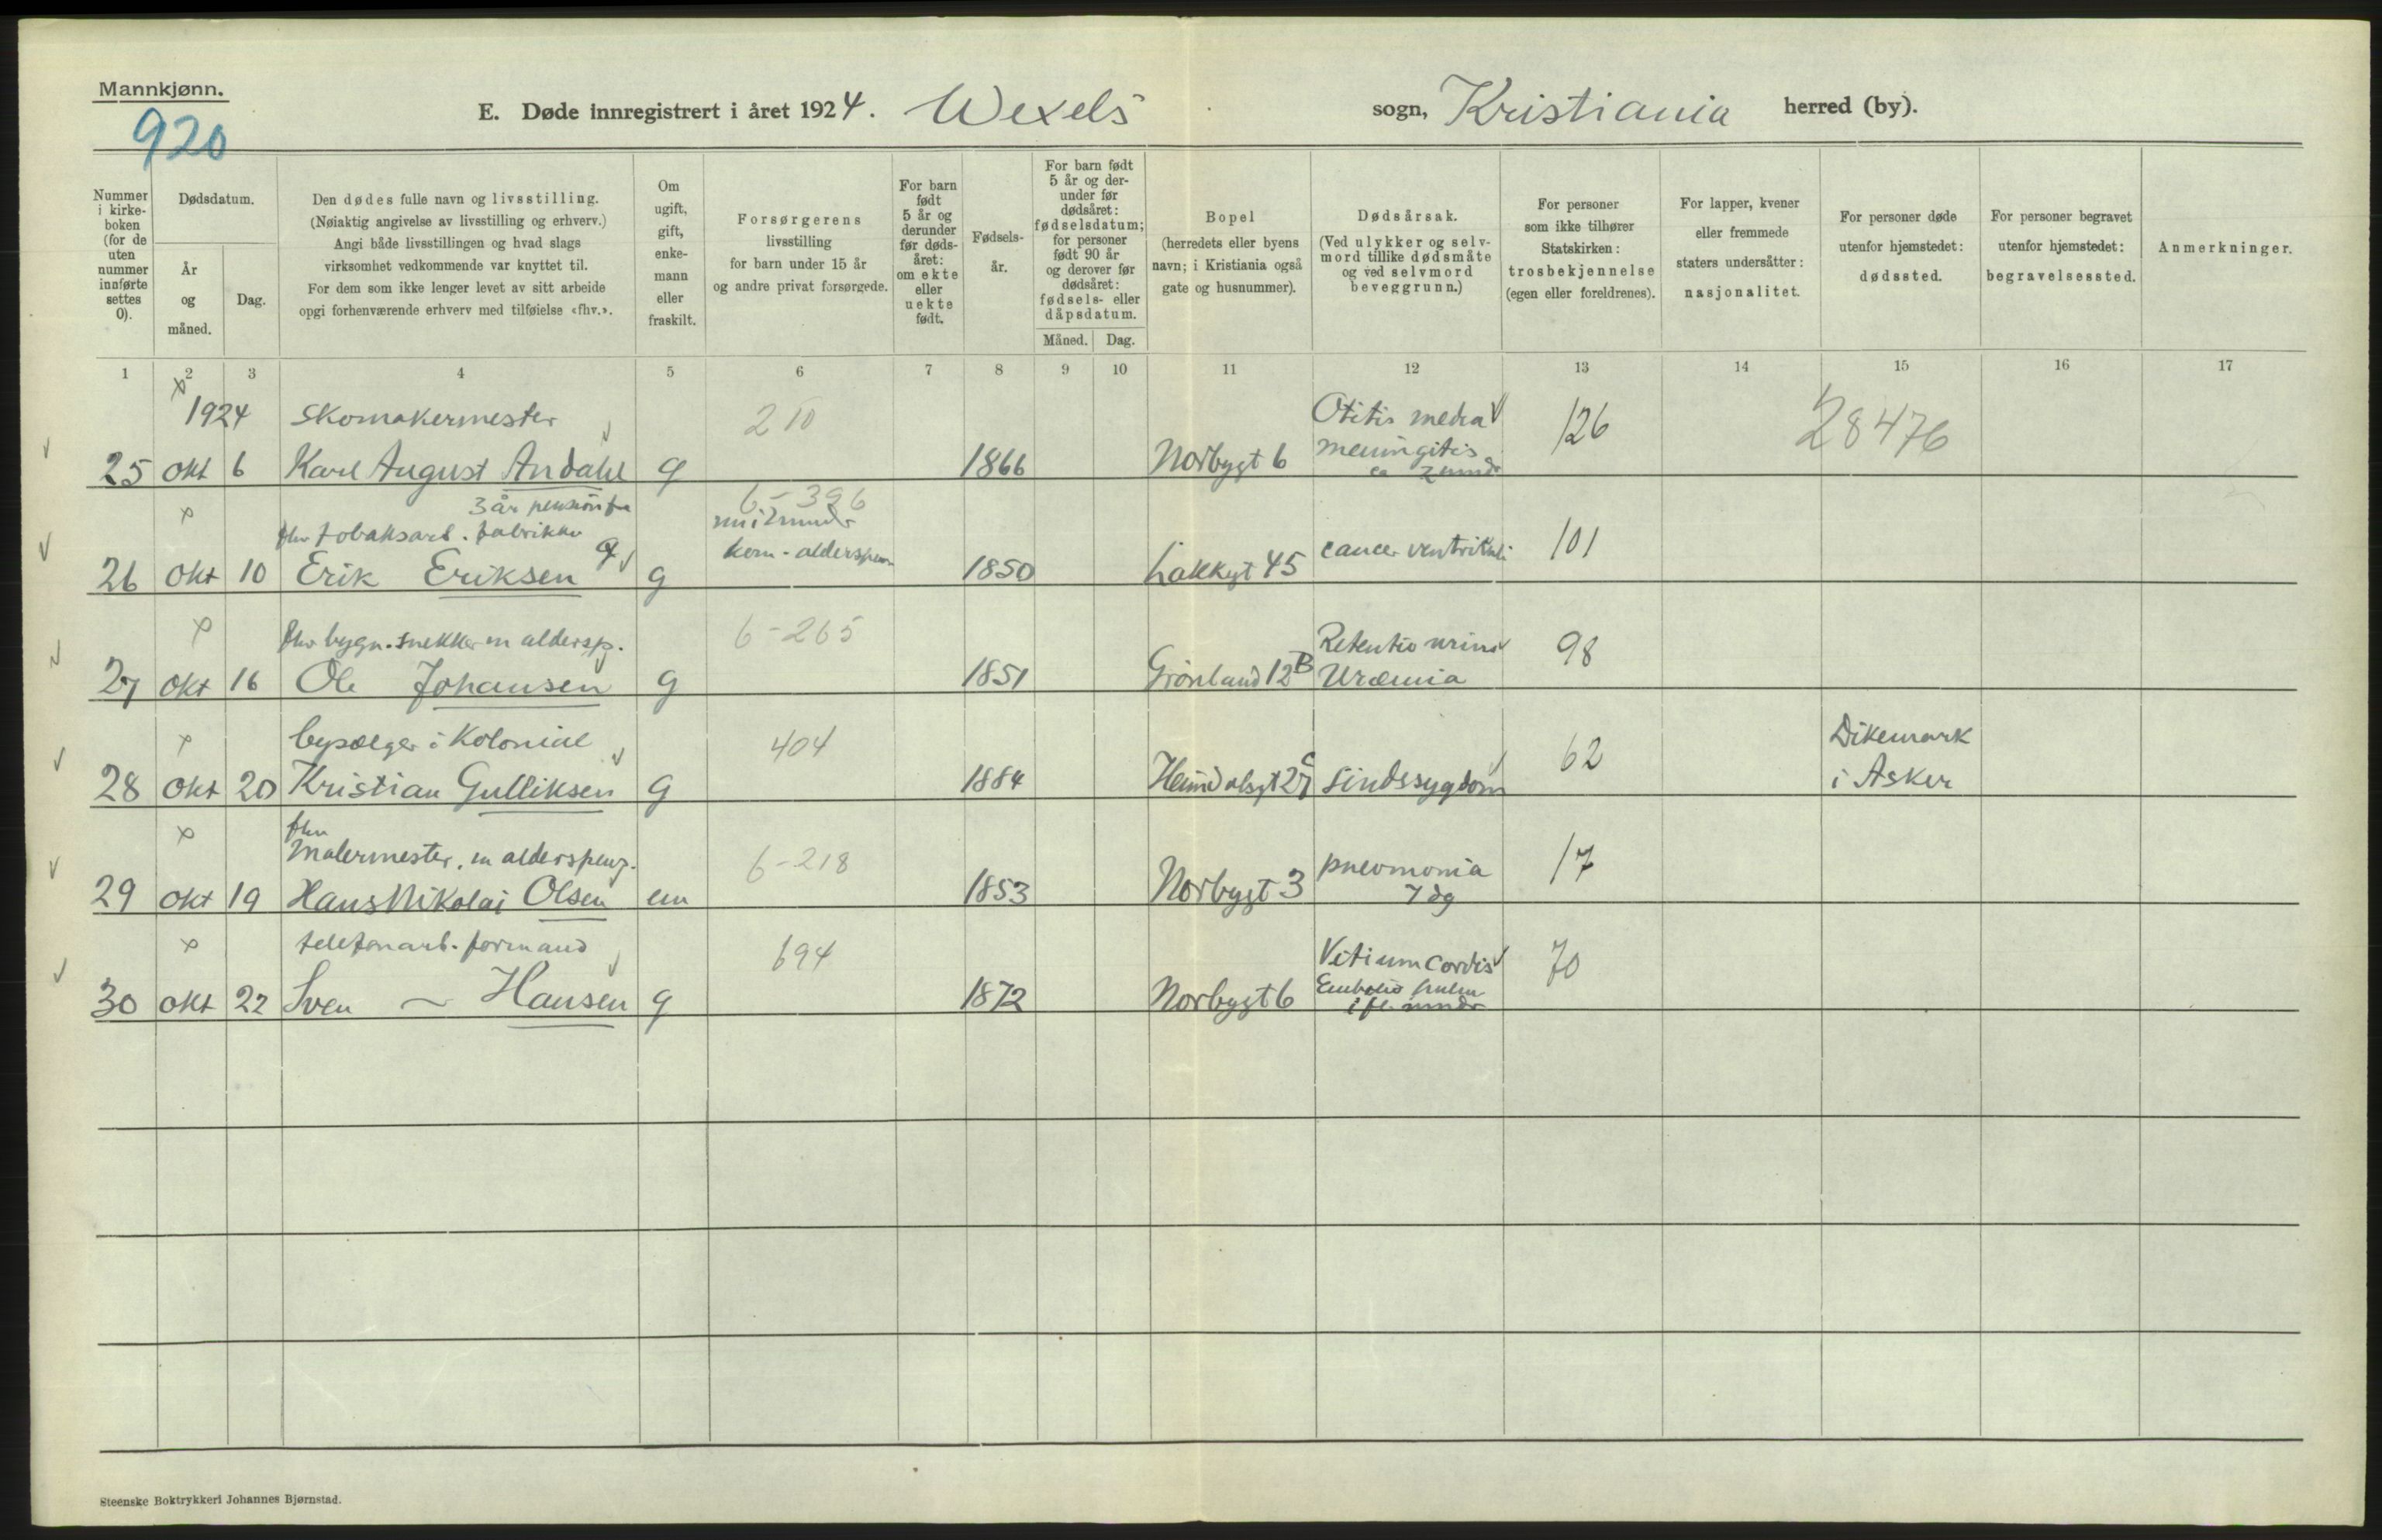 Mannkjønn.
920
E. Døde innregistrert i året 1924. Wexels sogn, Kristiania herred (by).
Nummer i kirkeboken (for de uten nummer innførte settes 0).
Dødsdatum.
År og måned.
Dag.
Den dødes fulle navn og livsstilling.
(Nøiaktig angivelse av livsstilling og erhverv.)
Angi både livsstillingen og hvad slags
virksomhet vedkommende var knyttet til.
For dem som ikke lenger levet av sitt arbeide
opgi forhenværende erhverv med tilføielse «fhv.».
Om ugift, gift, enkemann eller fraskilt.
Forsørgerens
livsstilling
for barn under 15 år
og andre privat forsørgede.
For barn født 5 år og derunder før dødsåret: om ekte eller uekte født.
Fødselsår.
For barn født 5 år og derunder før dødsåret: fødselsdatum; for personer født 90 år og derover før dødsåret: fødsels- eller dåpsdatum.
Måned. Dag.
Bopel
(herredets eller byens
navn; i Kristiania også
gate og husnummer).
Dødsårsak.
(Ved ulykker og selvmord tillike dødsmåte og ved selvmord beveggrunn.)
For personer
som ikke tilhører
Statskirken:
trosbekjennelse
(egen eller foreldrenes).
For lapper, kvener
eller fremmede
staters undersåtter:
nasjonalitet.
For personer døde
utenfor hjemstedet:
dødssted.
For personer begravet
utenfor hjemstedet:
begravelsessted.
Anmerkninger.
1 2 3 4 5 6 7 8 9 10 11 12 13 14 15 16 17
1924 Skomakermester 210 Otitis media 126 28476
25 okt 6 Karl August Andahl g 1866 Norbygt 6 meningitis
3 år pension fra 6-396
fhv tobaksarb. fabrikken
26 okt 10 Erik Eriksen g kom-alderspen 1850 Lakkegt 45 cancer ventrikuli 101
fhv bygn.snekker m aldersp. 6-265 Retentio urin 98
27 okt 16 Ole Johansen g 1851 Grønland 12B Uræmia
bypælger i Kolonial 404 62 Dikemark
28 okt 20 Kristian Gulliksen g 1884 Heimdalsgt 27 Sindssygdom i Asker
fhv
Malermester, m alderspeng. 6-218 pneomonia 17
29 okt 19 Hans Nikolai Olsen em 1853 Norbygt 3 7 dg
telefonarb. formand 694 Vitium Cordis 70
30 okt 22 Sven ~ Hansen g 1872 Norbygt 6 Embolio pulm
i fl. mndr
Steenske Boktrykkeri Johannes Bjørnstad.